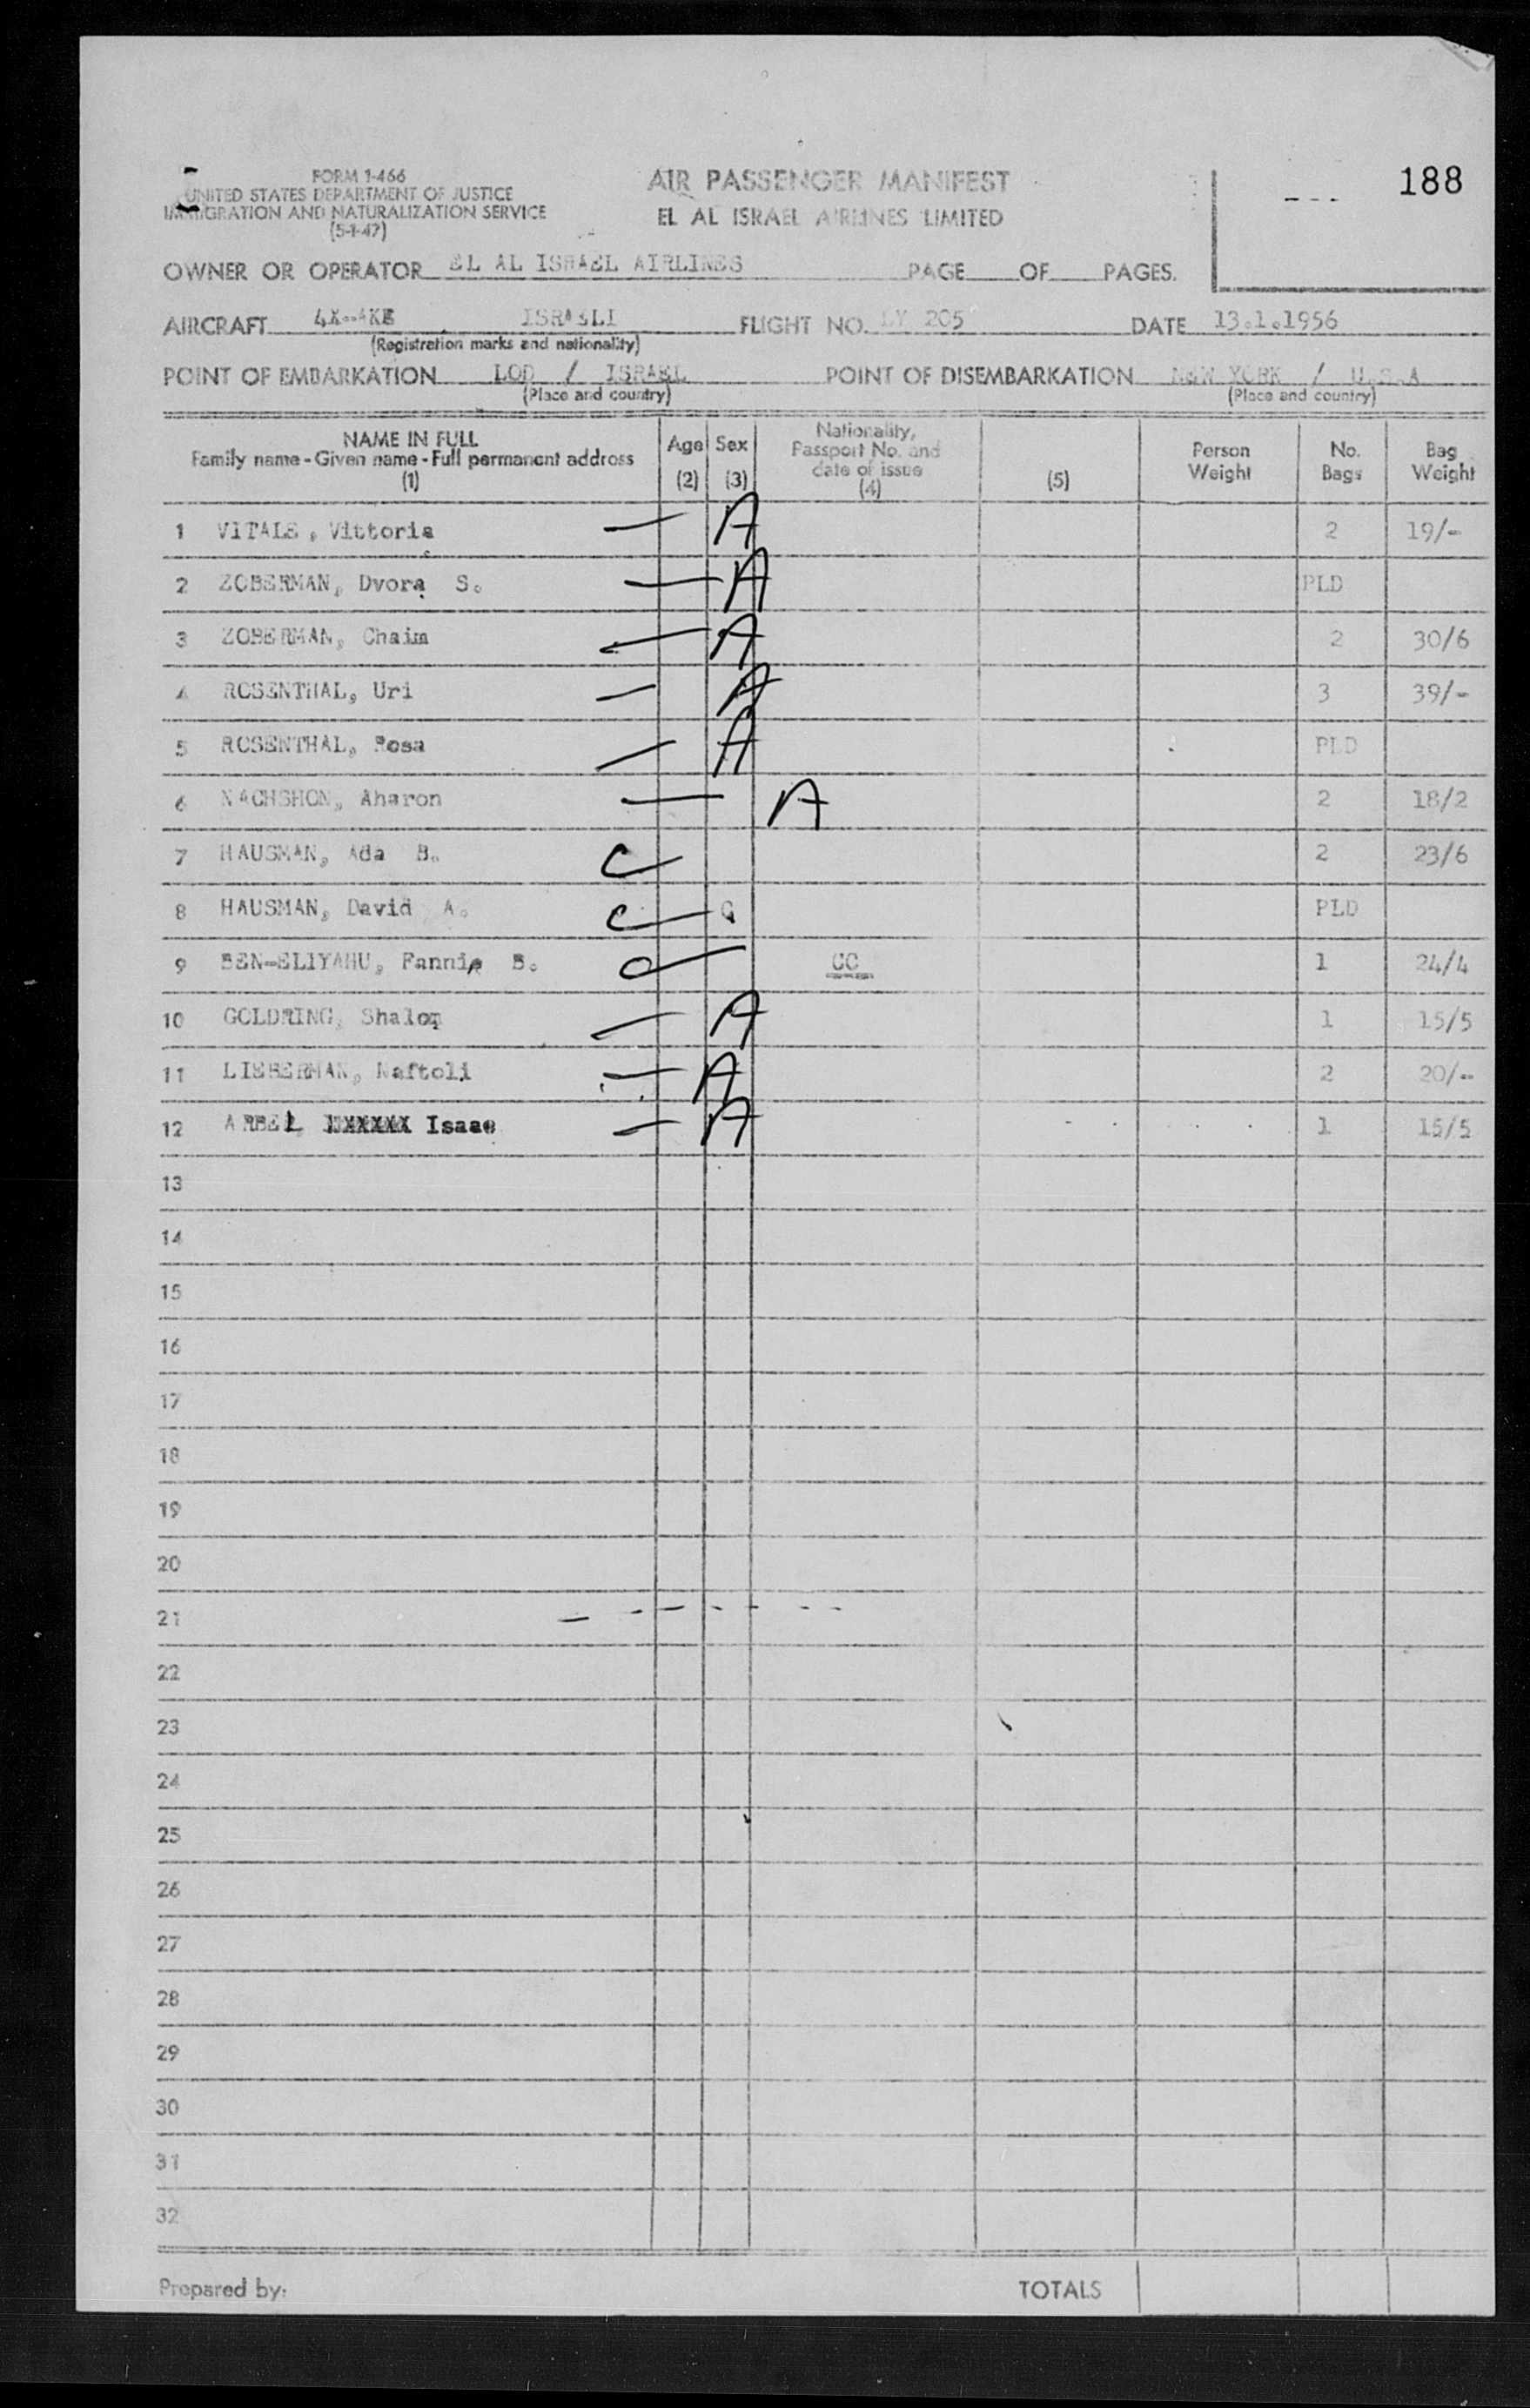 188
FORM 1-466
UNITED STATES DEPARTMENT OF JUSTICE
IMMIGRATION AND NATURALIZATION SERVICE
(5-1-47)
AIR PASSENGER MANIFEST
EL AL ISRAEL AIRLINES LIMITED
OWNER OR OPERATOR EL AL ISRAEL AIRLINES PAGE OF PAGES.
AIRCRAFT 4X-AKB ISRAELI FLIGHT NO. LY 205 DATE 13.1.1956
(Registration marks and nationality)
POINT OF EMBARKATION LOD / ISRAEL POINT OF DISEMBARKATION NEW YORK / U.S.A
(Place and country) (Place and country)
NAME IN FULL Family name - Given name - Full permanent address (1) Age (2) Sex (3) Nationality, Passport No. and date of issue (4) (5) Person Weight No. Bags Bag Weight
1 VITALE, Vittoria A 2 19/-
2 ZOBERMAN, Dvora S. A PLD
3 ZOBERMAN, Chaim A 2 30/6
4 ROSENTHAL, Uri A 3 39/-
5 ROSENTHAL, Rosa A PLD
6 NACHSHON, Aharon A 2 18/2
7 HAUSMAN, Ada B. C 2 23/6
8 HAUSMAN, David A. C C PLD
9 BEN-ELIYAHU, Fannie B. CC 1 24/4
10 GOLDRING, Shalom A 1 15/5
11 LIEBERMAN, Naftoli A 2 20/-
12 ARBEL Isaac A 1 15/5
13
14
15
16
17
18
19
20
21
22
23
24
25
26
27
28
29
30
31
32
Prepared by: TOTALS